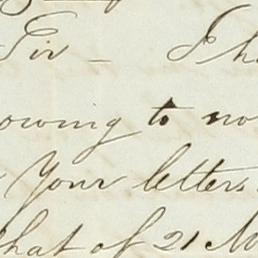 Sir – I h
owing to no
Your letters
that of 21 No